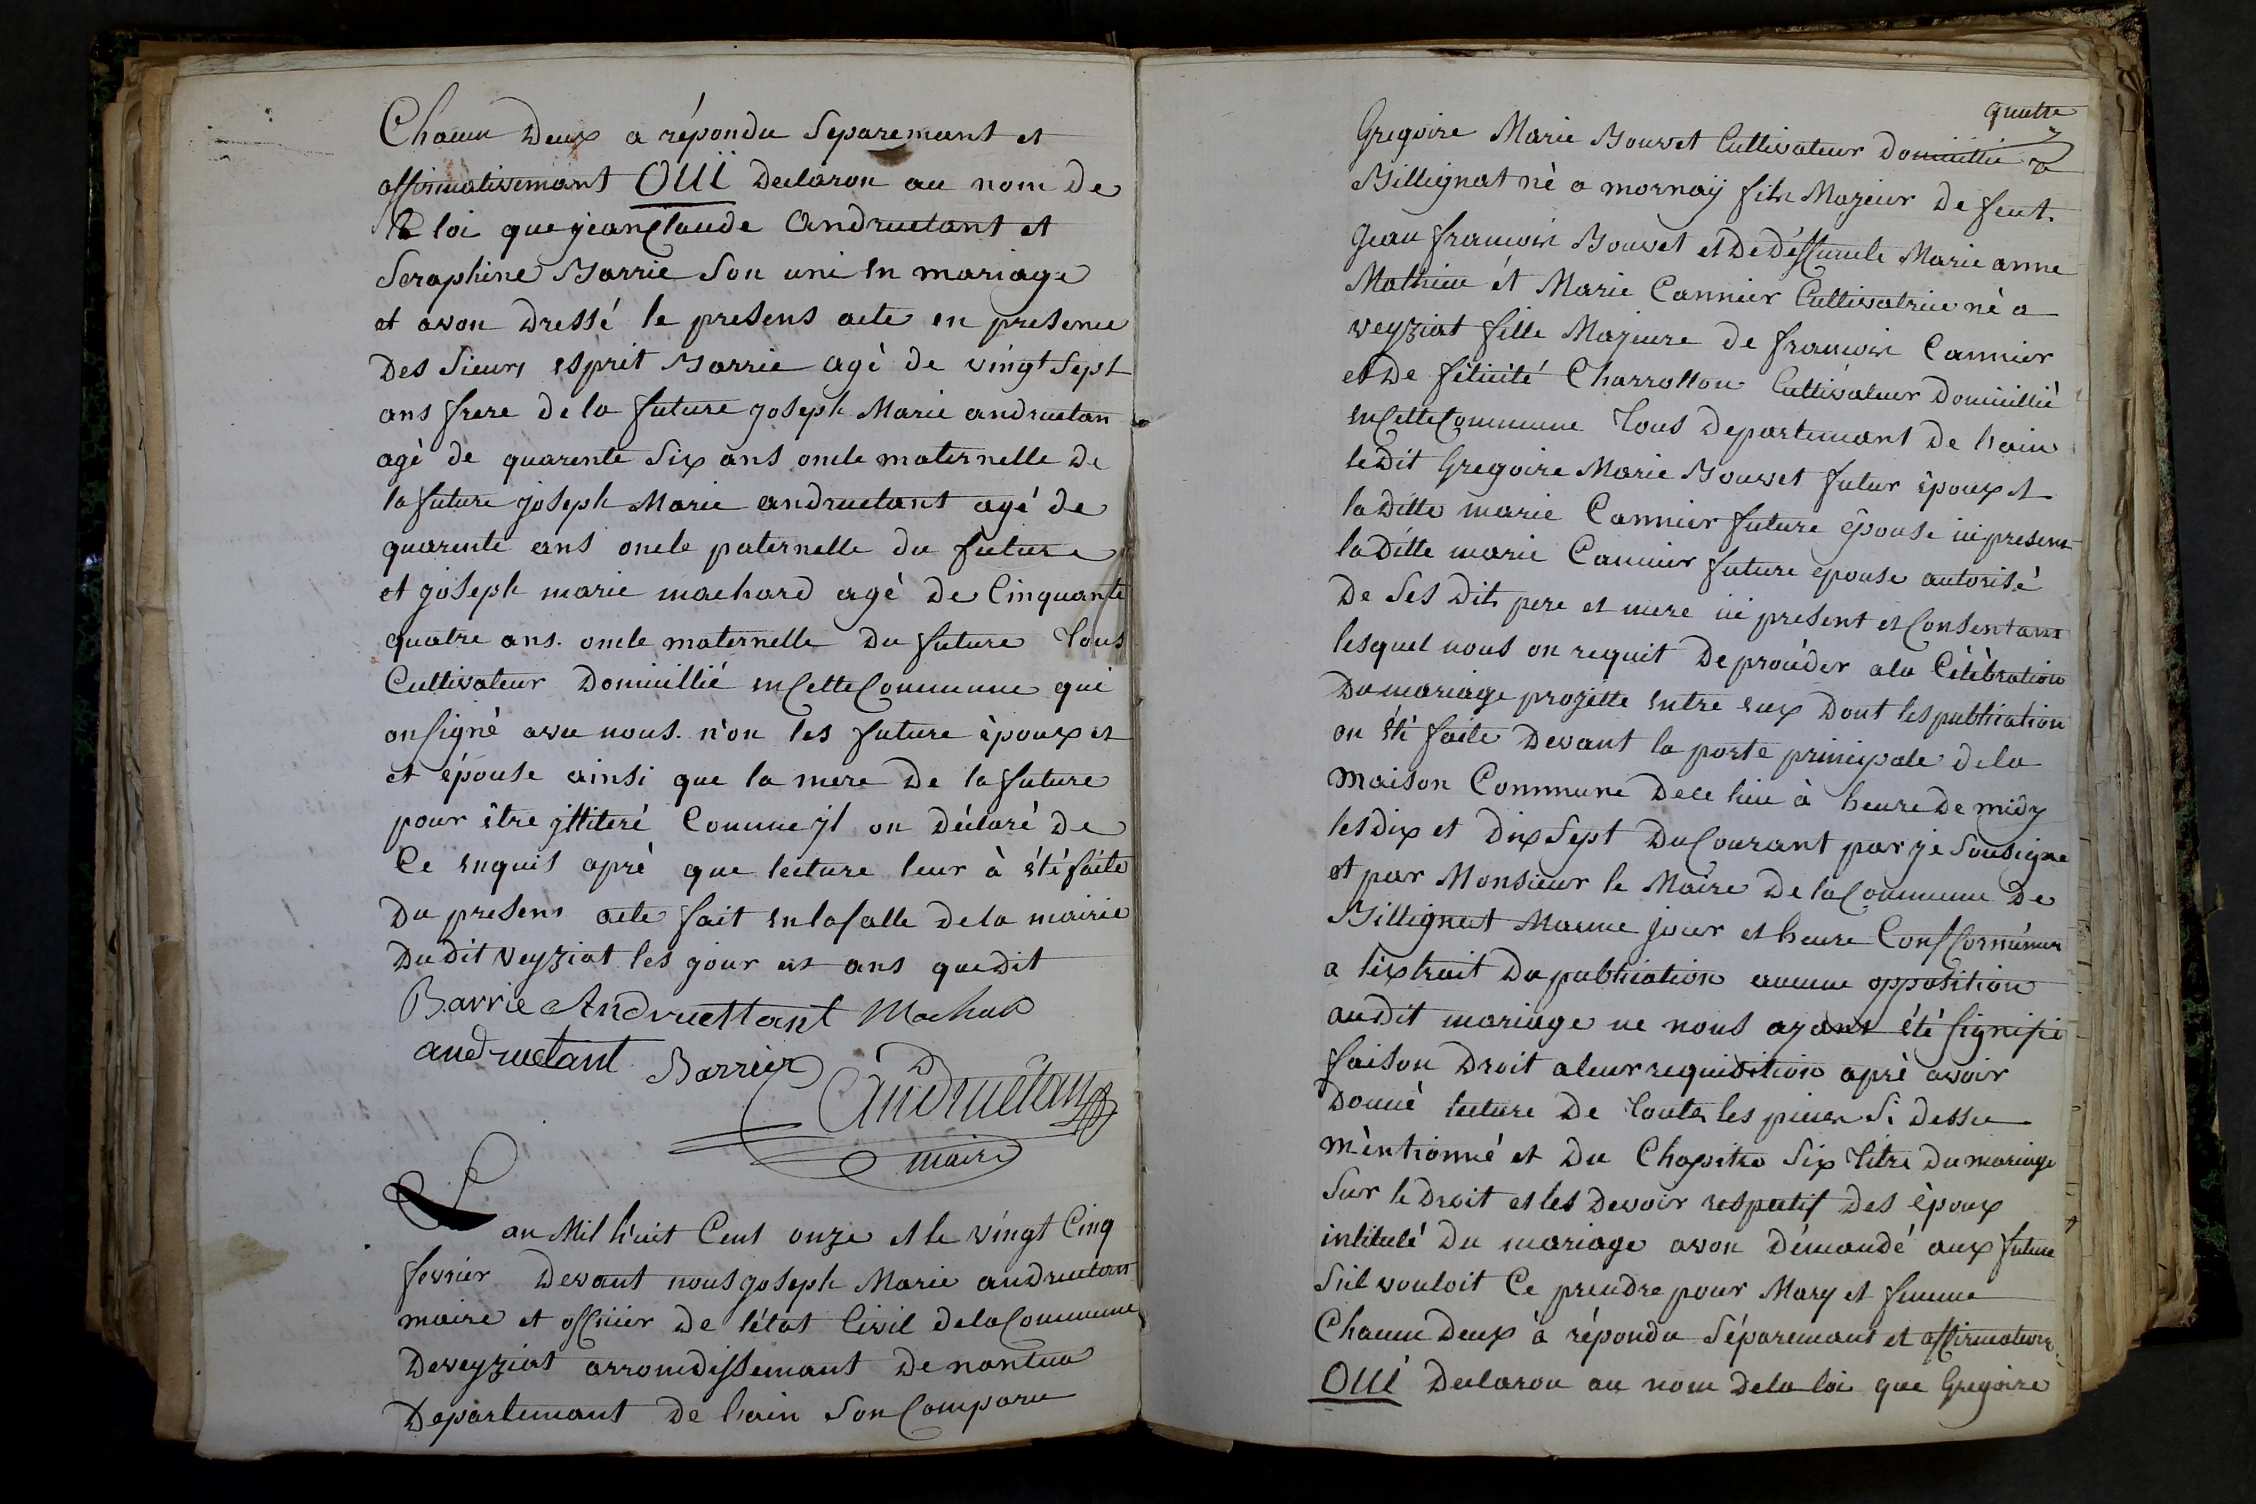 Chacun Deux a répondu Separemant et
affirmativemant OUI Declaron au nom De
la loi que jean Claude Andruetant et
Seraphine Barrie Son uni en mariage
et avon Dressé le presens acte en presence
Des Sieurs esprit Barrie agè de vingt Sept
ans frere de la future joseph Marie andruetan
agè de quarente Six ans oncle maternelle De
la future joseph Marie andruetant agé de
quarente ans oncle paternelle du future
et joseph marie machard agè De Cinquante
quatre ans. oncle maternelle Du future Tous
Cultivateur Domicillié en Cette Commune qui
on Signè avec nous. n'on les future èpoux et
et épouse ainsi que la mere De la future
pour être jlliteré Comme jl on Déclaré De
Ce enquis aprè que lecture leur à été faite
Du presens acte fait en la Salle De la mairie
Du Dit veyziat les jour et ans que Dit
Barrie Andruettant Machard
andruetant Barrier
Andruetan
maire
L'an Mil huit Cent onze et le vingt Cinq
fevrier Devant nous joseph Marie andruetant
maire et officier De l'état Civil De la Commune
De veyziat arrondissemant De nantua
Departemant De l'ain Son Comparu
quatre
Gregoire Marie Bouvet Cultivateur Domicillié a
Billignat nè a mornaÿ fils Majeur De feut.
jean francois Bouvet et De Déffunte Marie anne
Mathieu ét Marie Cannier Cultivatrice né a
veyziat fille Majeure De francois Cannier
et De félicité Charrollon Cultivateur Domicillié
en Cette Commune Tous Departemant De l'ain
le Dit Gregoire Marie Bouvet futur èpoux et
la Ditte marie Cannier future èpouse ici present
la Ditte marie Cannier future epouse autorisé
De Ses Dit pere et mere ici present et Consentant
lesquel nous on requit De procéder a la Cèlèbration
Du mariage projette entre eux Dont les publication
on été faite Devant la porte principale De la
Maison Commune De Ce lieu à heure De midy
les Dix et Dix Sept Du Courant par je Sousigne
et par Monsieur le Maire De la Commune De
Billignat Maeme jour et heure Confformémen
a l'extrait Du publication aucune opposition
au Dit mariage ne nous ayant été Signifié
faison Droit a leur requisition aprè avoir
Donné lecture De Toutes les pieces Si Dessu
mèntionné et Du Chapitre Six Titre Du mariage
Sur le Droit et les Devoir respectif Des èpoux
intitulé Du mariage avon Démandé aux future
S'il vouloit Ce prendre pour Mary et femme
Chacun Deux à répondu Séparemant et affirmative
OUI Declaron au nom De la loi que Gregoire